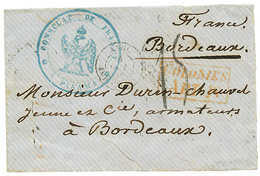 France.
Bordeaux.
CONSULAT DE
COLONIES
Monsieur Durin-Chauvel
Jeune et Cie, armateurs
à Bordeaux.